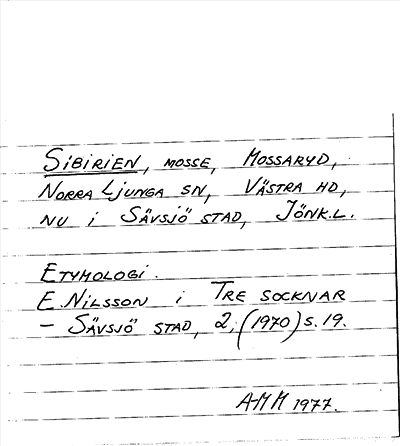 SIBIRIEN, MOSSE, MOSSARYD,
NORRA LJUNGA SN, VÄSTRA HD,
NU I SÄVSJÖ STAD, JÖNK.L.
ETYMOLOGI.
E. NILSSON I TRE SOCKNAR
– SÄVSJÖ STAD, 2, (1970) S. 19.
AMM 1977.